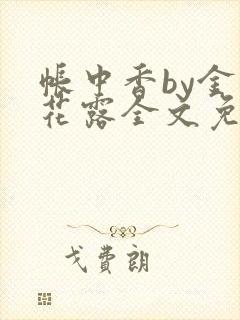 帐中香by金
花露全文免
戈费朗